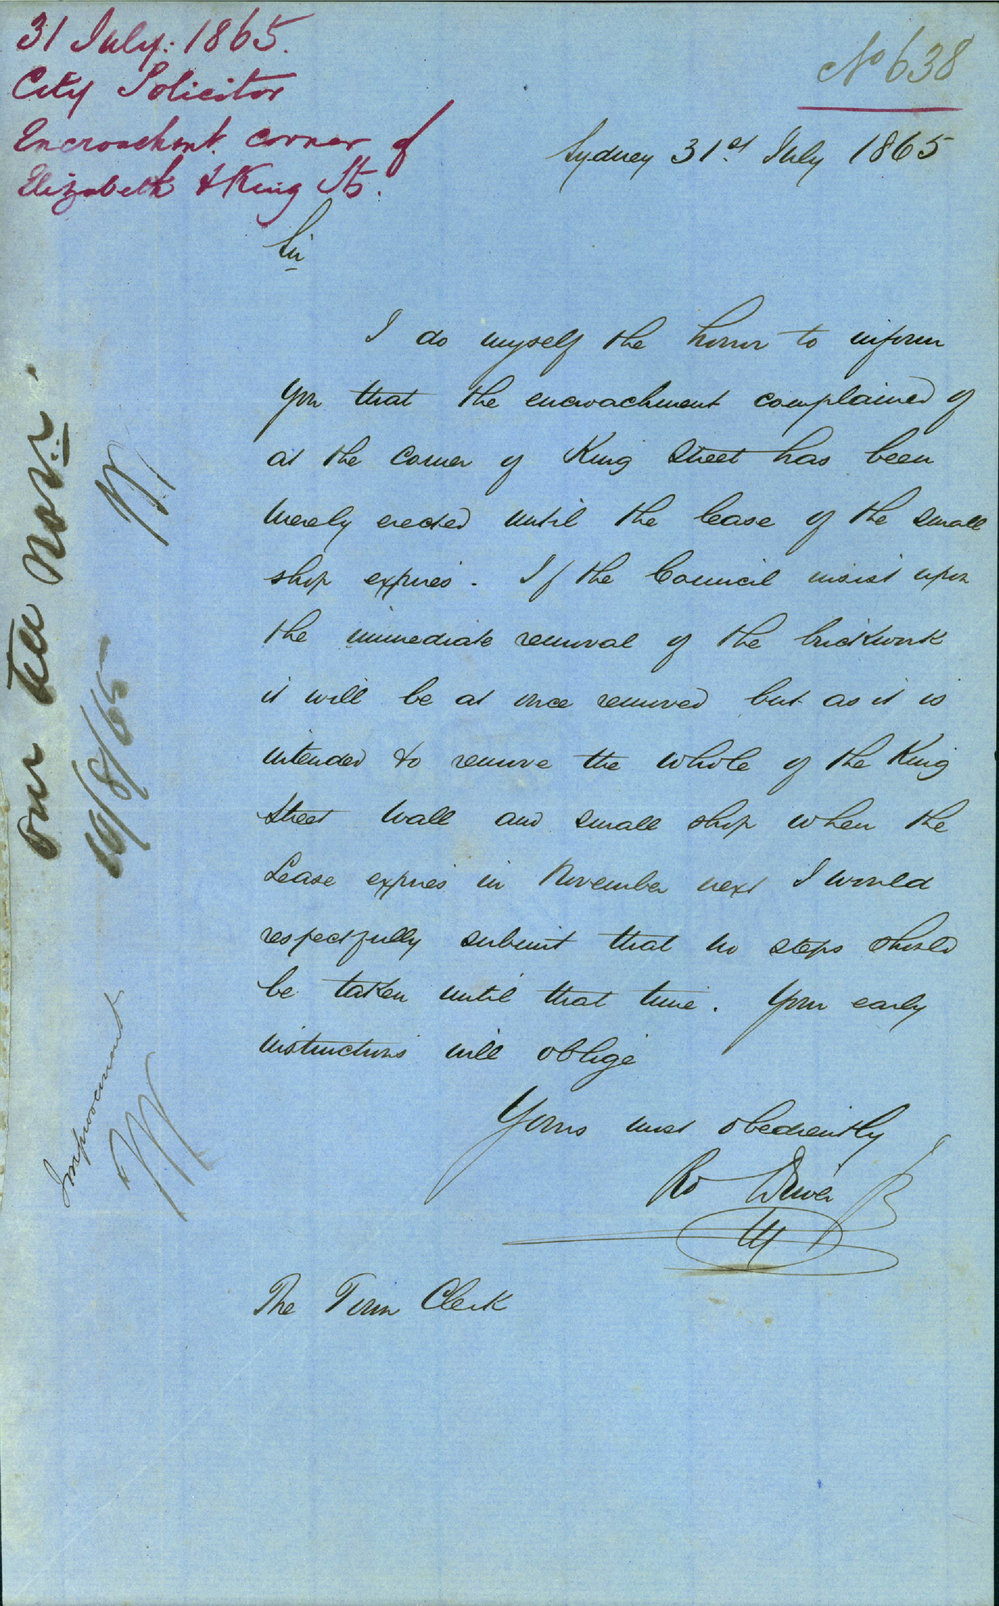 31 July. 1865.
City Solicitor
Encroachmt. corner of
Elizabeth & King Sts.
No 638
Sydney 31st July 1865
Sir
I do myself the honor to inform
you that the encroachment complained of
at the corner of King Street has been
merely erected until the lease of the small
shop expires. If the Council insist upon
the immediate removal of the brickwork
it will be at once removed but as it is
intended to remove the whole of the King
Street wall and small shop when the
Lease expires in November next I would
respectfully submit that no steps should
be taken until that time. Your early
instructions will oblige
Yours most obediently
Ro Driver
The Town Clerk
Nov.
/8/65
Improvement